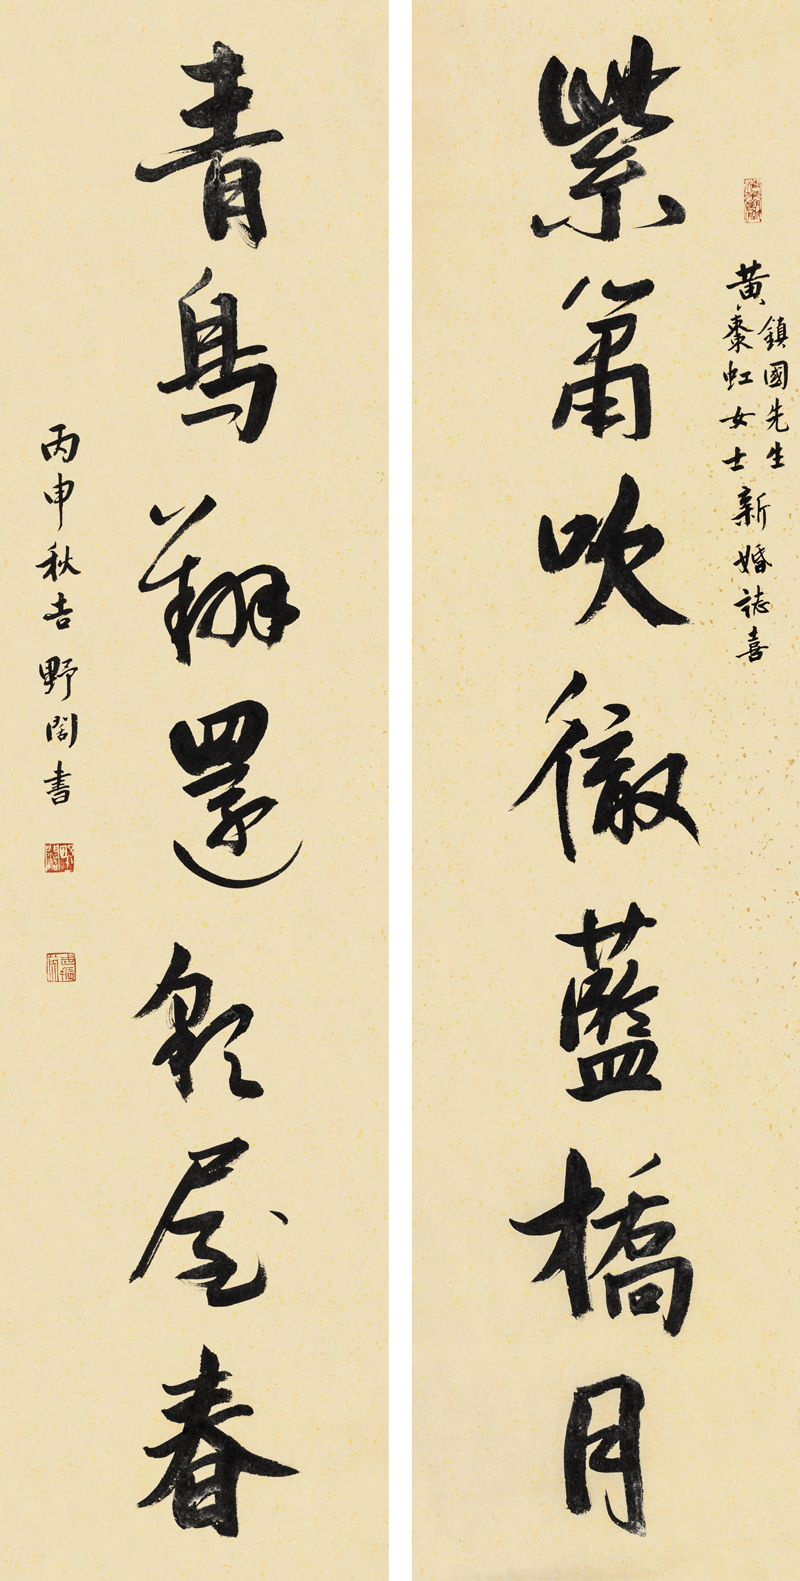 紫簫吹徹藍橋月
黃
鎮國先生
虹女士
新婚誌喜
青鳥翔還屋春
丙申秋吉野書